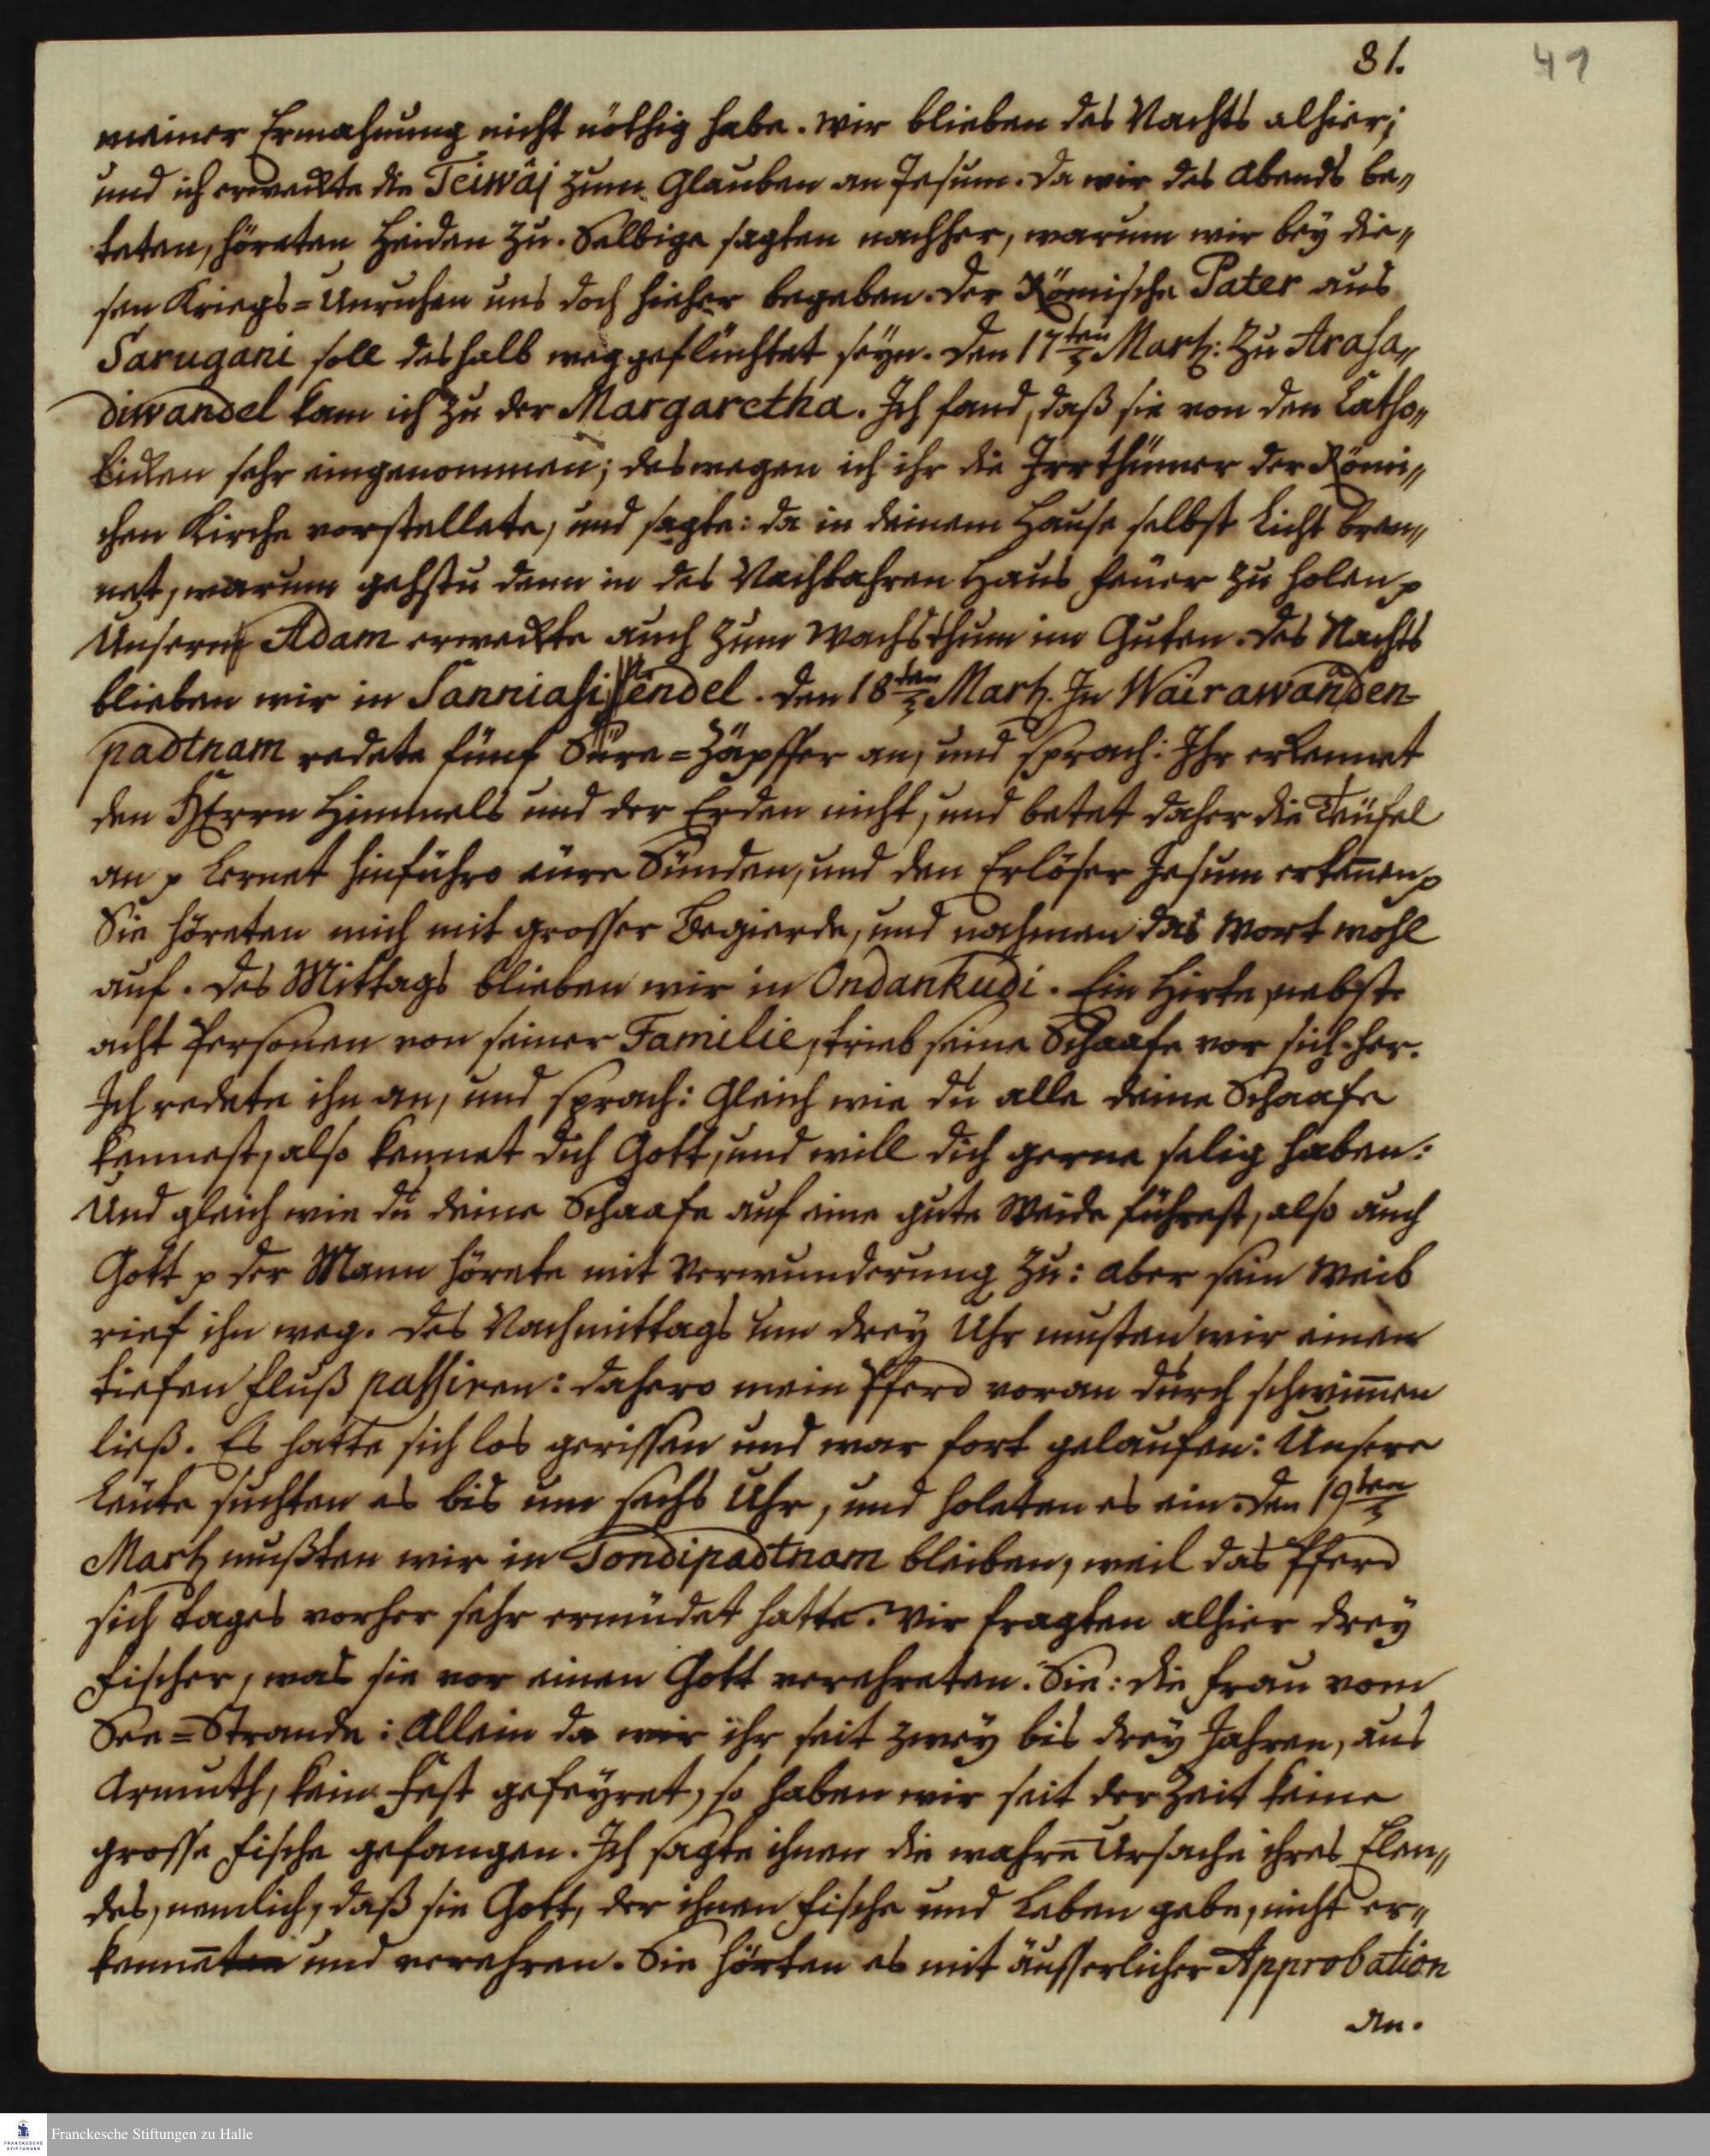 81.
41
meiner Ermahnung nicht nöthig habe. Wir blieben des Nachts alhier;
und ich erweckte die Teiwâj zum Glauben an Jesum. Da wir des Abends be„
teten, höreten Heiden zu. Selbige sagten nachher, warum wir bey die„
sen Kriegs=Unruhen uns doch hieher begeben. Der Römische Pater aus
Sarugani soll deshalb weggeflüchtet seyn. Den 17ten Mart: Zu Arasa„
diwandel kam ich zu der Margaretha. Ich fand, daß sie von den Catho„
licken sehr eingenommen; deswegen ich ihr die Irrthümer der Römi„
chen Kirche vorstellete, und sagte: da in deinem Hause selbst Licht bren„
net, warum gehstu denn in des Nachbahren Haus Feuer zu holen p
Unsern Adam erweckte auch zum Wachsthum im Guten. Des Nachts
blieben wir in Sanniasi Pêndel. Den 18ten Mart. In Wairawanden-
padtnam redete fünf Süre=Zäpffer an, und sprach: Ihr erkennet
den HErrn Himmels und der Erden nicht, und betet daher die Teüfel
an p Lernet hinführo eure Sünden, und den Erlöser Jesum erkeñen p
Sie höreten mich mit grosser Begierde, und nahmen das Wort wohl
auf. Des Mittags blieben wir in Ondankudi. Ein Hirte, nebst
acht Personen von seiner Familie, trieb seine Schaafe vor sich her.
Ich redete ihn an, und sprach: Gleich wie du alle deine Schaafe
kennest, also kennet dich Gott, und will dich gerne selig haben:
Und gleich wie du deine Schaafe auf eine gute Weide führest, also auch
Gott p Der Mann hörete mit Verwunderung zu: aber sein Weib
rief ihn weg. Des Nachmittags um drey Uhr musten wir einen
tiefen Fluß passiren: dahero mein Pferd voran durch schwim̃en
ließ. Es hatte sich los gerissen und war fort gelaufen: Unsere
Leute suchten es bis um sechs Uhr, und holeten es ein. Den 19ten
Mart mußten wir in Tondipadtnam bleiben, weil das Pferd
sich tages vorher sehr ermüdet hatte. Wir fragten alhier drey
Fischer, was sie vor einen Gott verehreten. Sie: die Frau vom
See=Strande: Allein da wir ihr seit zwey bis drey Jahren, aus
Armuth, kein Fest gefeyret, so haben wir seit der Zeit keine
grosse Fische gefangen. Ich sagte ihnen die wahre Ursache ihres Elen„
des, nemlich, daß sie Gott, der ihnen Fische und Leben gebe, nicht er„
kenneten und verehren. Sie hörten es mit äusserlicher Approbation
an.
Franckesche Stiftungen zu Halle
FRANCKESCHE STIFTUNGEN